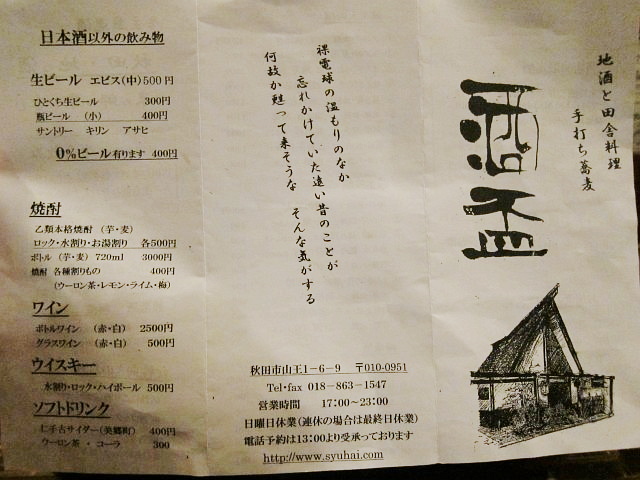 地酒と田舎料理
手打ち蕎麦
酒盃
裸電球の温もりのなか
忘れかけていた遠い昔のことが
何故か甦って来そうな そんな気がする
秋田市山王1－6－9 〒010-0951
Tel・fax 018－863－1547
営業時間 17:00～23:00
日曜日休業(連休の場合は最終日休業)
電話予約は13:00より受承っております
http://www.syuhai.com
日本酒以外の飲み物
生ビール エビス(中)500円
ひとくち生ビール 300円
瓶ビール (小) 400円
サントリー キリン アサヒ
0%ビール有ります 400円
焼酎
乙類本格焼酎 (芋・麦)
ロック・水割り・お湯割り 各500円
ボトル (芋・麦) 720ml 3000円
焼酎 各種割りもの 400円
(ウーロン茶・レモン・ライム・梅)
ワイン
ボトルワイン (赤・白) 2500円
グラスワイン (赤・白) 500円
ウイスキー
水割り・ロック・ハイボール 500円
ソフトドリンク
仁手古サイダー(美郷町) 400円
ウーロン茶・コーラ 300